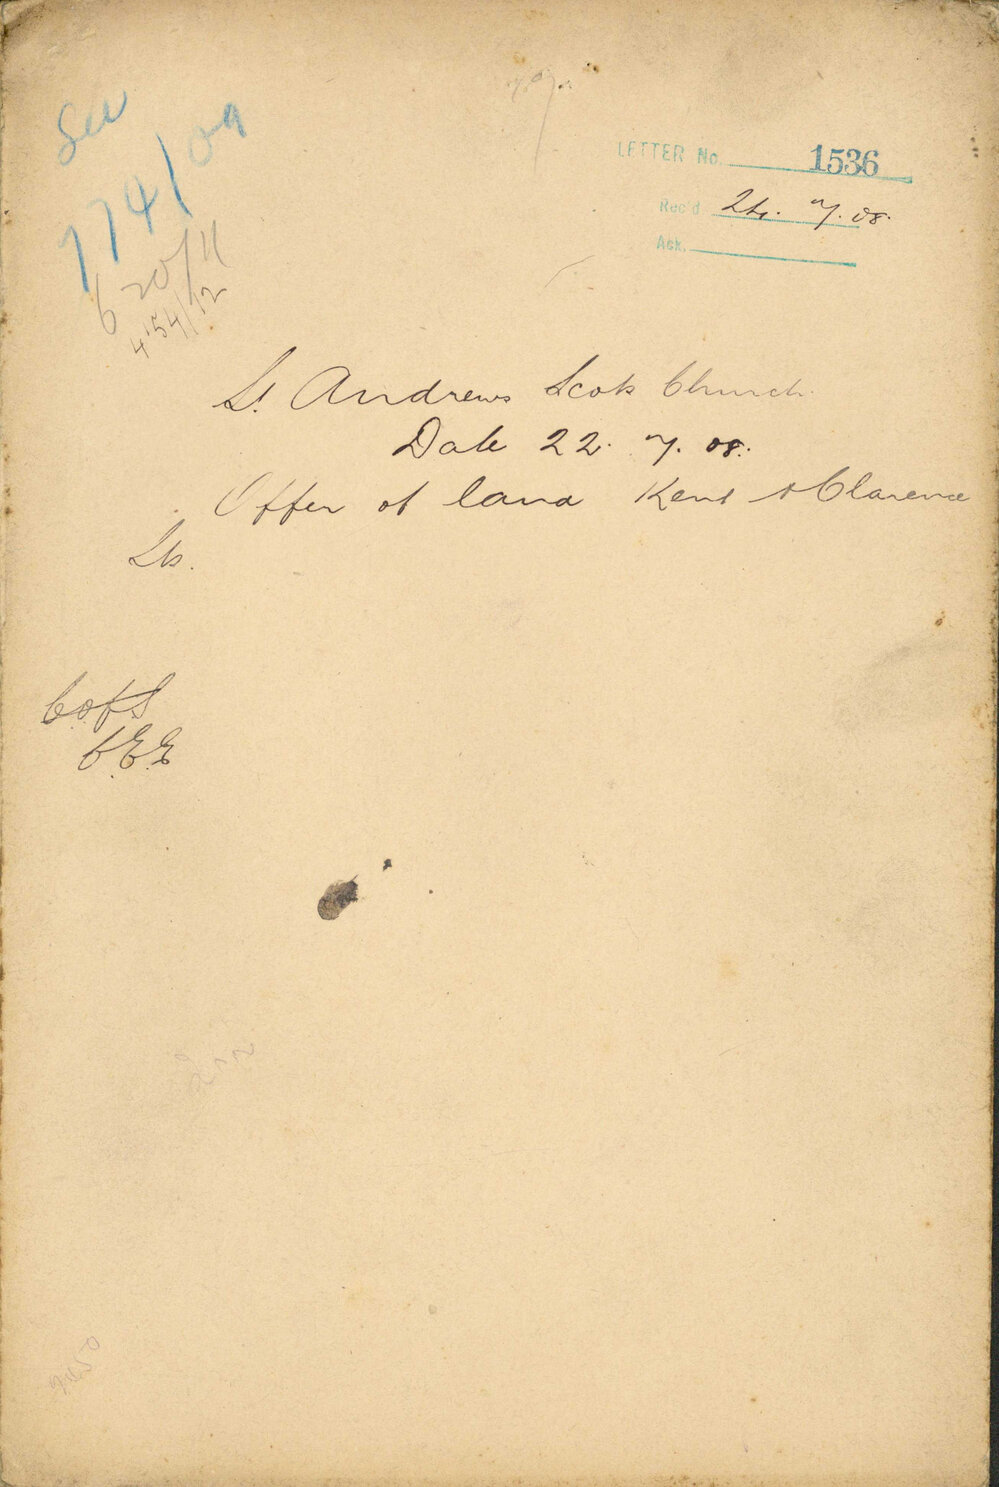 See
774/09
620/11
454/12
LETTER No. 1536
Rec'd 24. 7. 08.
Ack.
St. Andrews Scots Church
Date 22. 7. 08.
Offer of land Kent & Clarence
Sts.
C.of S
C.E.E